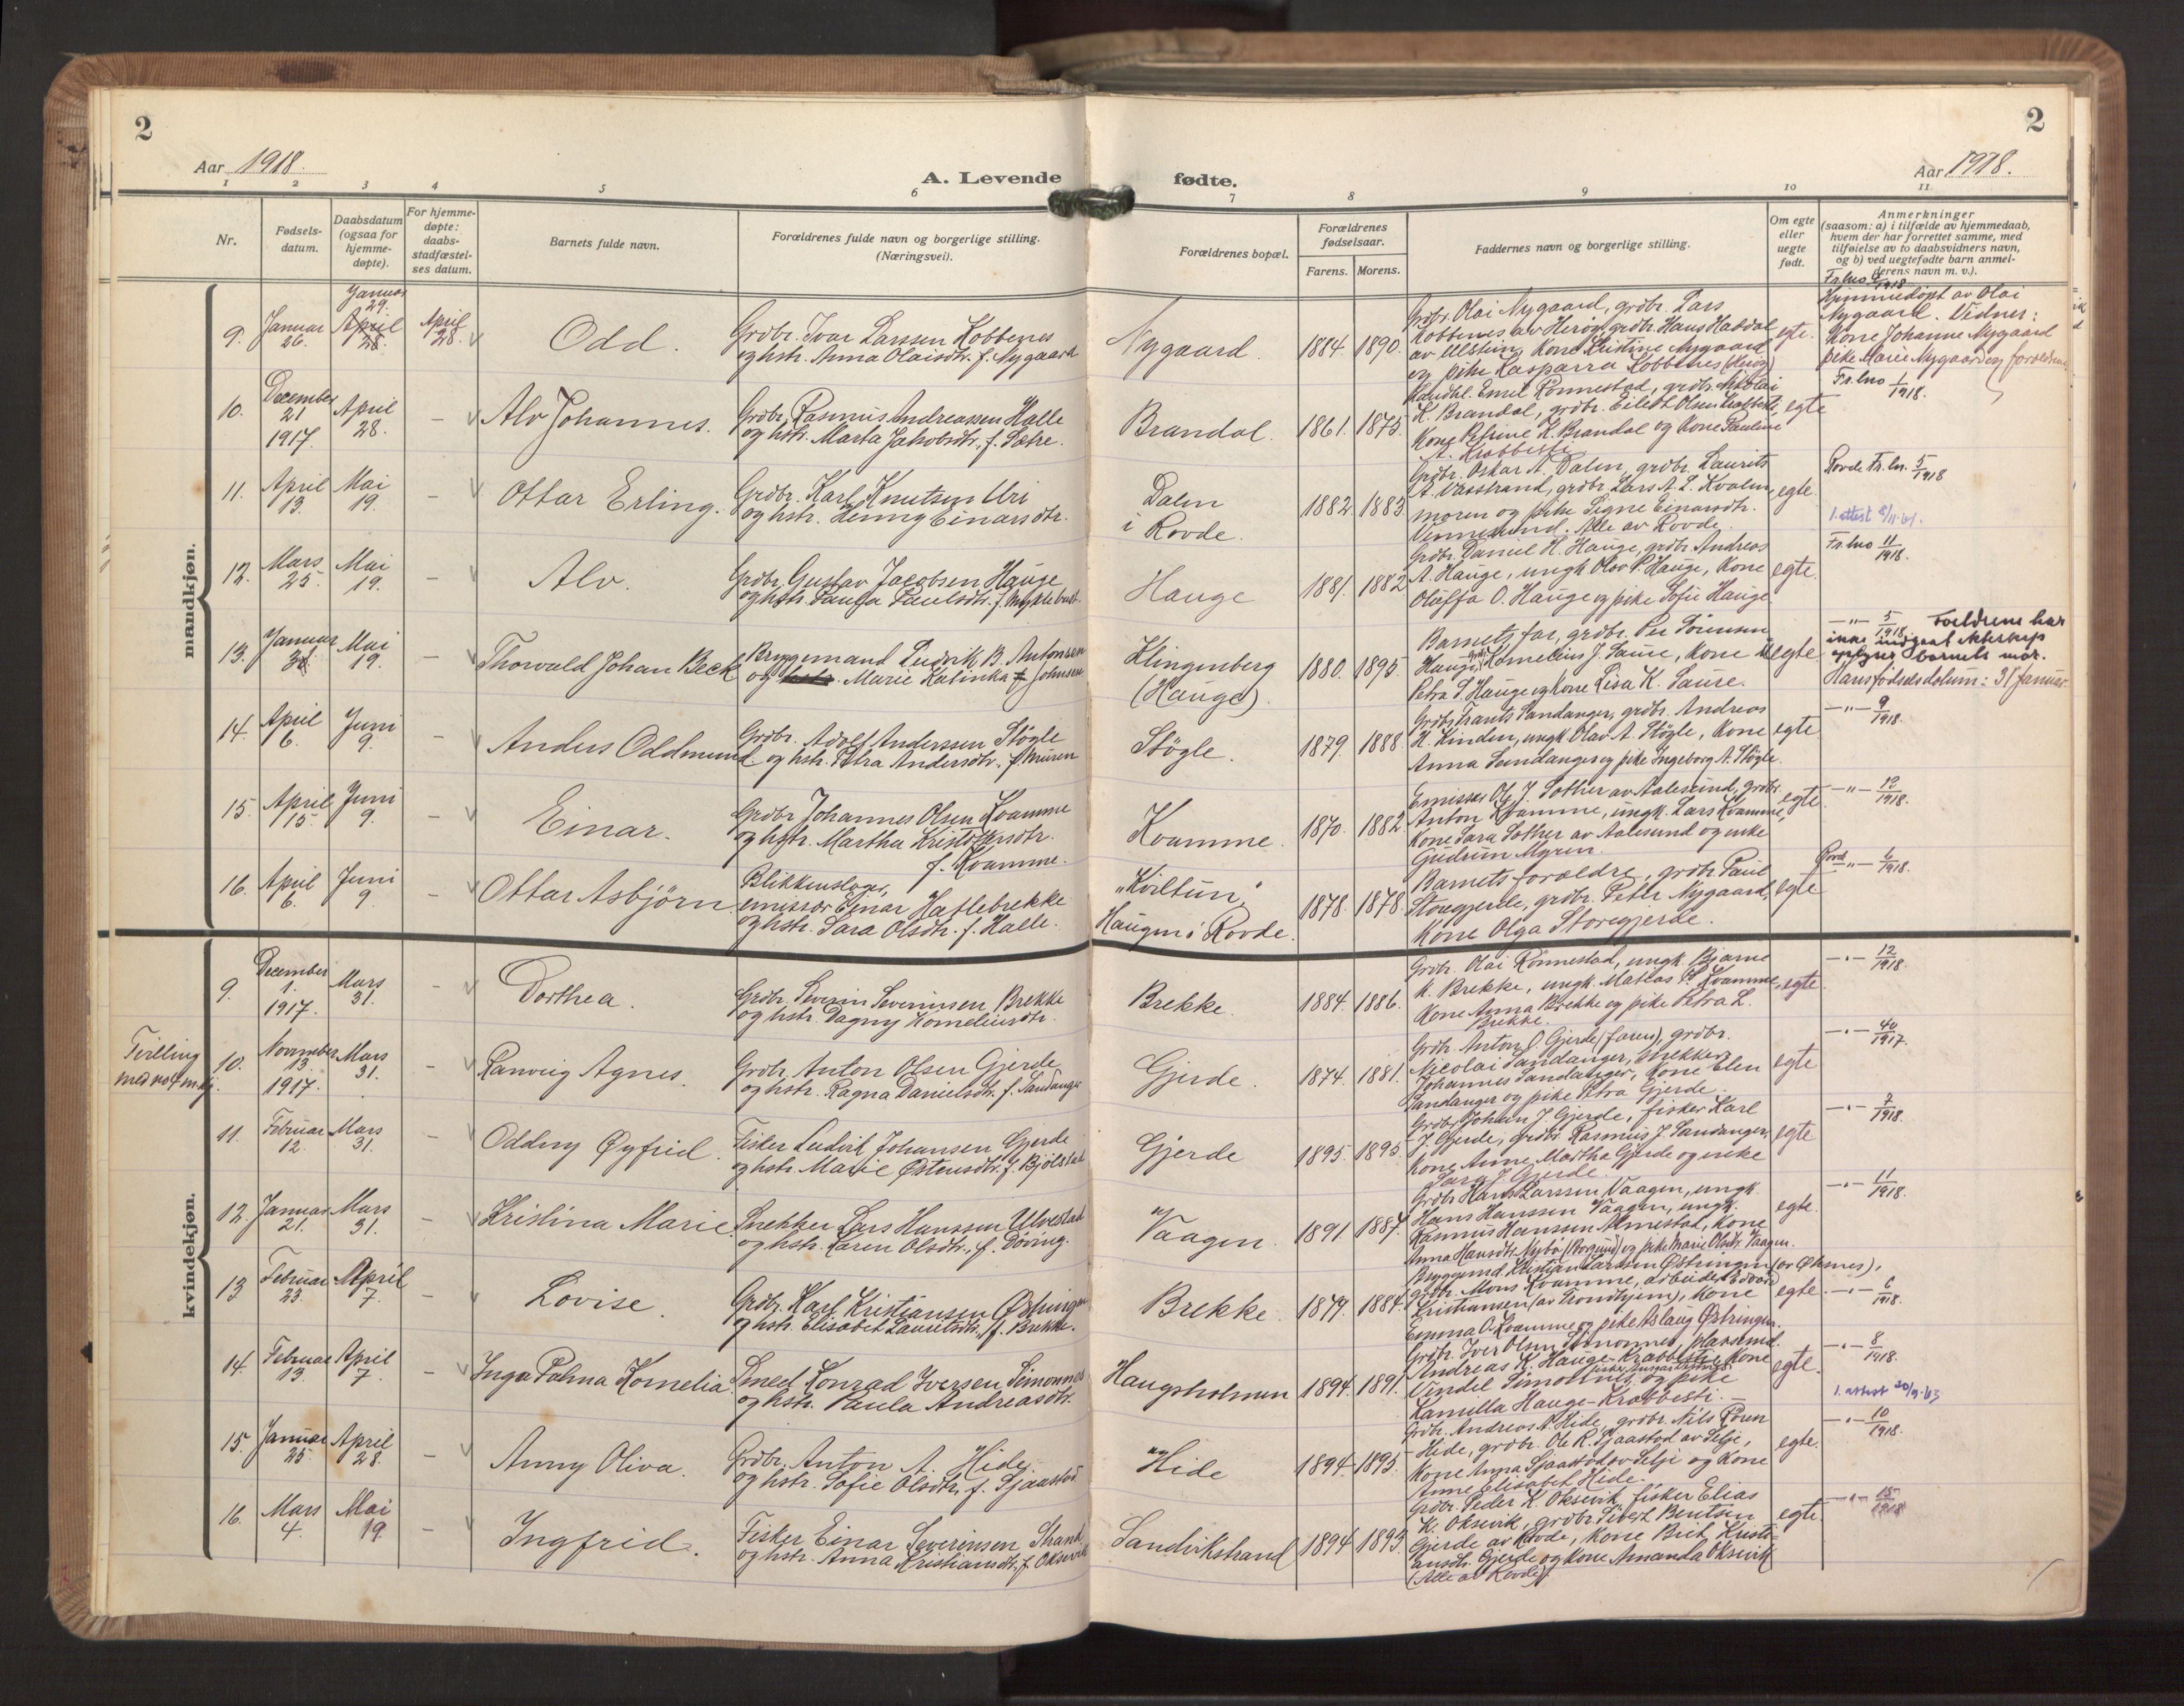 2
2
Aar 1918.
A. Levende
fødte.
Aar 1918.
1 2 3 4 5 6 7 8 9 10 11
Nr.
Fødsels-
datum.
Daabsdatum
(ogsaa for
hjemme-
døpte).
For hjemme-
døpte:
daabs-
stadfæstel-
ses datum.
Barnets fulde navn.
Forældrenes fulde navn og borgerlige stilling.
(Næringsvei).
Forældrenes bopæl.
Forældrenes
fødselsaar.
Farens.
Morens.
Faddernes navn og borgerlige stilling.
Om egte
eller
uegte
født.
Anmerkninger
(saasom: a) i tilfælde av hjemmedaab,
hvem der har forrettet samme, med
tilføielse av to daabsvidners navn,
og b) ved uegtefødte barn anmel-
derens navn m. v.).
mandkjøn.
9. Januar 26.
Januar 29.
April 28.
April 28.
Odd.
Grdbr. Ivar Larssen Kobbenes
og hstr. Anna Olaisdtr. f. Nygaard
Nygaard.
1884. 1890.
Grdbr. Olai Nygaard, grdbr. Lars
Kobbenes av Herøy, grdbr. Hans Haddal
av Ulstein, Kone Kristine Nygaard
og pike Kasparra Kobbenes (Herøy)
egte.
Hjemmedøpt av Olai
Nygaard. Vidner:
Kone Johanne Nygaard
pike Marie Nygaard og forældrene
10. December 21 1917.
April 28.
-
Alv Johannes.
Grdbr. Rasmus Andreassen Halle
og hstr. Marta Jakobsdtr. f. Sætre.
Brandal.
1861. 1875.
Handsl. Emil Rønnestad, grdbr. Nikolai
K. Brandal, grdbr. Eilert Olsen Krabbesti,
Kone Petrine K. Brandal og Kone Pauline
A. Krabbesti
egte
Fr.lno 1/1918.
11. April 13.
Mai 19.
-
Ottar Erling.
Grdbr. Karl Knutsen Uri
og hstr. Jenny Einarsdtr.
Dalen
i Rovde.
1882. 1883.
Grdbr. Oskar A. Dalen, grdbr. Laurits
A. Vasstrand, grdbr. Lars A. L. Kvalen,
moren og pike Signe Einarsdtr.
Vinnesund. Alle av Rovde.
egte
Rovde Fr.ln. 5/1918
1. attest 8/11.61.
12. Mars 25.
Mai 19.
-
Alv.
Grdbr. Gustav Jacobsen Hauge
og hstr. Lauga Paulsdtr. f. Myklebust.
Hauge
1881. 1882
Grdbr. Daniel H. Hauge, grdbr. Andreas
A. Hauge, ungk. Olav P. Hauge, Kone
Oleffa O. Hauge og pike Sofie Hauge
egte.
Fr.lno 11/1918.
13. Januar 31.
Mai 19.
-
Thorvald Johan Beck
Bryggemand Ludvik B. Antonsen
og hstr. Marie Katinka f. Johnsen
Klingenberg
(Hauge).
1880. 1895.
Barnets far, grdbr. Per Sørensen
Hauge, Kornelius J. Saure, Kone
Petra S. Hauge og kone Lisa K. Saure.
uegte
-"- 5/1918. Forældrene har
ikke indgaat ekteskap
opgiver barnets mor.
Hans fødselsdatum: 31 Januar
14. April 6.
Juni 9.
-
Anders Oddmund
Grdbr. Adolf Anderssen Støgle
og hstr. Petra Andersdtr. f. Muren
Støgle.
1879. 1888.
Grdbr. Frants Sandanger, grdbr. Andreas
K. Kinden, ungk. Olav A. Støgle, Kone
Anna Sandanger og pike Ingeborg A. Støgle.
egte
-"- 9/1918.
15. April 15.
Juni 9.
-
Einar.
Grdbr. Johannes Olsen Kvamme
og hstr. Martha Kristoffersdtr.
f. Kvamme.
Kvamme.
1870. 1882.
Emissær Ole J. Sother av Aalesund, grdbr.
Anton Kvamme, ungk. Lars Kvamme,
Kone Sara Sother av Aalesund og enke
Gudrun Myren.
egte.
-"- 12/1918.
16. April 6.
Juni 9.
-
Ottar Asbjørn
Blikkenslager,
emissær Einar Hatlebrekke
og hstr. Sara Olsdtr. f. Halle.
"Kviltun",
Haugen i Rovde.
1878. 1878.
Barnets forældre, grdbr. Paul
Storegjerde, grdbr. Petter Nygaard,
Kone Olga Storegjerde.
egte
-"- 6/1918.
kvindekjøn.
9. December 1. 1917.
Mars 31.
-
Dorthea.
Grdbr. Severin Severinsen Brekke
og hstr. Dagny Korneliusdtr.
Brekke.
1884. 1886.
Grdbr. Olai Rønnestad, ungk. Bjarne
K. Brekke, ungk. Matias P. Kvamme,
Kone Anna Brekke og pike Petra L.
Brekke.
egte.
-"- 12/1918.
Tvilling
med no 4 mdkj.
10. November 13. 1917.
Mars 31.
-
Ranveig Agnes.
Grdbr. Anton Olsen Gjerde
og hstr. Ragna Danielsdtr. f. Sandanger
Gjerde.
1874. 1881.
Grdbr. Anton O. Gjerde (faren), grdbr.
Nicolai Sandanger, snekker
Johannes Sandanger, Kone Elen
Sandanger og pike Petra Gjerde.
egte
-"- 40/1917.
11. Februar 12.
Mars 31.
-
Oddny Øyfrid.
Fisker Ludvik Johansen Gjerde
og hstr. Marie Østensdtr. f. Bjølstad
Gjerde
1895. 1895.
Grdbr. Johan J. Gjerde, fisker Karl
J. Gjerde, grdbr. Rasmus J. Sandanger,
Kone Anne Martha Gjerde og enke
Sara J. Gjerde.
egte
-"- 7/1918.
12. Januar 21.
Mars 31.
-
Kristina Marie.
Snekker Lars Hanssen Ulvestad
og hstr. Karen Olsdtr., f. Døving.
Vaagen.
1891. 1887.
Grdbr. Hans Larssen Vaagen, ungk.
Hans Hanssen Vaagen, ungk.
Rasmus Hanssen Almestad, Kone
Anna Hansdtr. Nybø (Borgund) og pike Marie Olsdtr. Vaagen.
egte.
-"- 11/1918.
13 Februar 23.
April 7.
-
Lovise.
Grdbr. Karl Kristiansen Østringen
og hstr. Elisabet Lauritsdtr. f. Brekke.
Brekke.
1879. 1884.
Bryggemd. Kristian Larssen Østringen (av Øksnes),
grdbr. Mons Kvamme, arbeider Edvard
Kristiansen (av Trondhjem), Kone
Emma O. Kvamme og pike Aslaug Østringen.
egte.
-"- 6/1918.
14. Februar 13.
April 7.
-
Inga Palma Kornelia
Smed Konrad Iversen Simonnes
og hstr. Paula Andreasdtr.
Haugsholmen
1894. 1891.
Grdbr. Iver Olsen Simonnes, plassmd.
Andreas K. Hauge-Krabbesti, Kone
Vendel Simonnes og pike
Kamilla Hauge-Krabbesti.
egte.
-"- 8/1918.
1. attest 20/9-63
15. Januar 25.
April 28.
-
Anny Oliva.
Grdbr. Anton A. Hide
og hstr. Sofie Olsdtr. f. Sjaastad
Hide
1894. 1895.
Grdbr. Andreas A. Hide, grdbr. Nils Søren
Hide, grdbr. Ole R. Sjaastad av Selje,
Kone Anna Sjaastad av Selje og Kone
Anne Elisabet Hide.
egte.
-"- 10/1918.
16. Mars 4.
Mai 19.
-
Ingfrid.
Fisker Einar Severinsen Strand
og hstr. Anna Kristiansdtr. f. Oksvik
Sandvikstrand
1894 1893.
Grdbr. Peder K. Oksvik, fisker Elias
K. Oksvik, grdbr. Sivert Bentsen
Gjerde av Rovde, Kone Brit Kristi-
ansdtr. Gjerde og Kone Amanda Oksvik
(Alle av Rovde)
egte.
-"- 15/1918